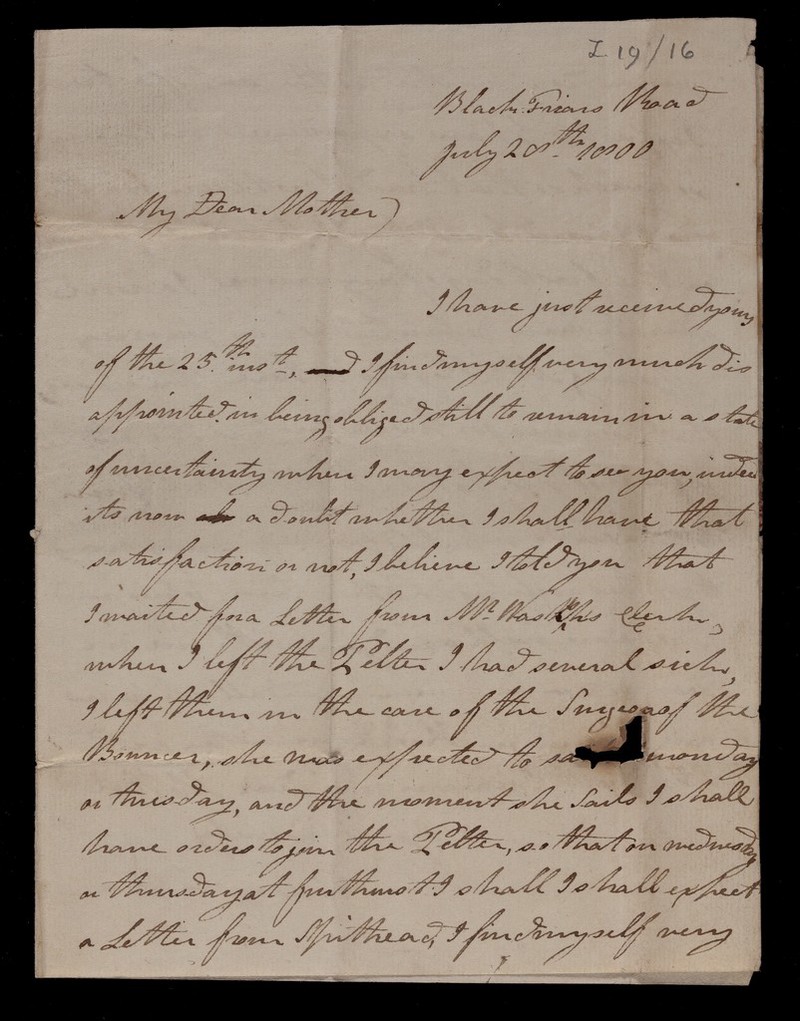 I 19/16
Black Friars Road
July 28th 1800
My Dear Mother
I have just received yours
of the 25th inst, I find myself very much dis
appointed in being obliged still to remain in a state
of uncertainty when I may expect to see you, indeed
its now a doubt whether I shall have that
satisfaction or not, I believe I told you that
I waited for a Letter from Mr Clerk,
when I left the Pelter I had several sick,
I left them in the care of the Surgeon of the
Bouncer, she was expected to sa monday
or tuesday, and the moment she Sails I shall
have orders to join the Pelter, so that on wednesday
or thursday at furthust I shall I shall expect
a Letter from Spithead, I find myself very